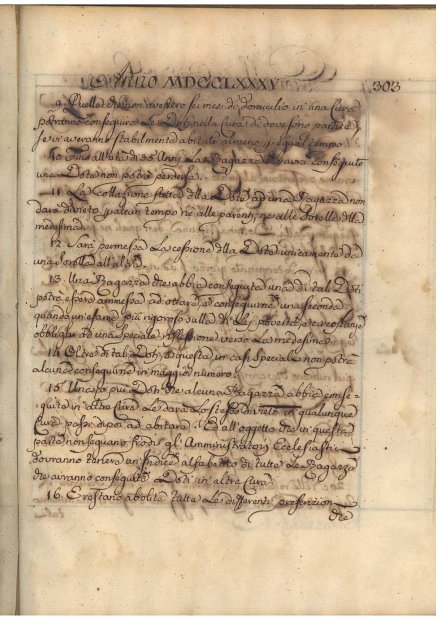 Anno MDCCLXXXV 303
9. Quelle che non avessero sei mesi di domicilio in una Cura
potranno conseguire le Doti nella Cura di dove sono partite,
se vi averanno stabilmente abitato almeno per egual tempo
10. Fino all'età di 35 Anni la Ragazza che avrà conseguito
una Dote non potrà perderla.
11. La Collazione fatta della Dote ad una Ragazza non
darà divieto per alcun tempo nè alle parenti, nè alle Sorelle della
medesima.
12. Sarà permessa la cessione della Dote unicamente da
una Sorella all'altra.
13. Una Ragazza che abbia conseguita una di tali Doti
potrà essere ammessa ad ottare, e conseguirne una seconda
quando un'esame più rigoroso sulla di Lei povertà, e circostanze
obblighi ad una speciale riflessione verso la medesima.
14. Oltre di tali Doti, e questa in casi speciali non potrà
alcuna conseguirne in maggior numero.
15. Una, o più Doti che alcuna Ragazza abbia conse=
=guita in altra Cura le darà lo stesso divieto in qualunque
Cura passi di poi ad abitare. Ed all'oggetto che in questa
parte non seguano frodi gl'Amministratori Ecclesiastici
dovranno tenere un Indice alfabetico di tutte le Ragazze
che avranno conseguito Doti in altra Cura.
16. E restano abolite tutte le differenti prescrizioni
che